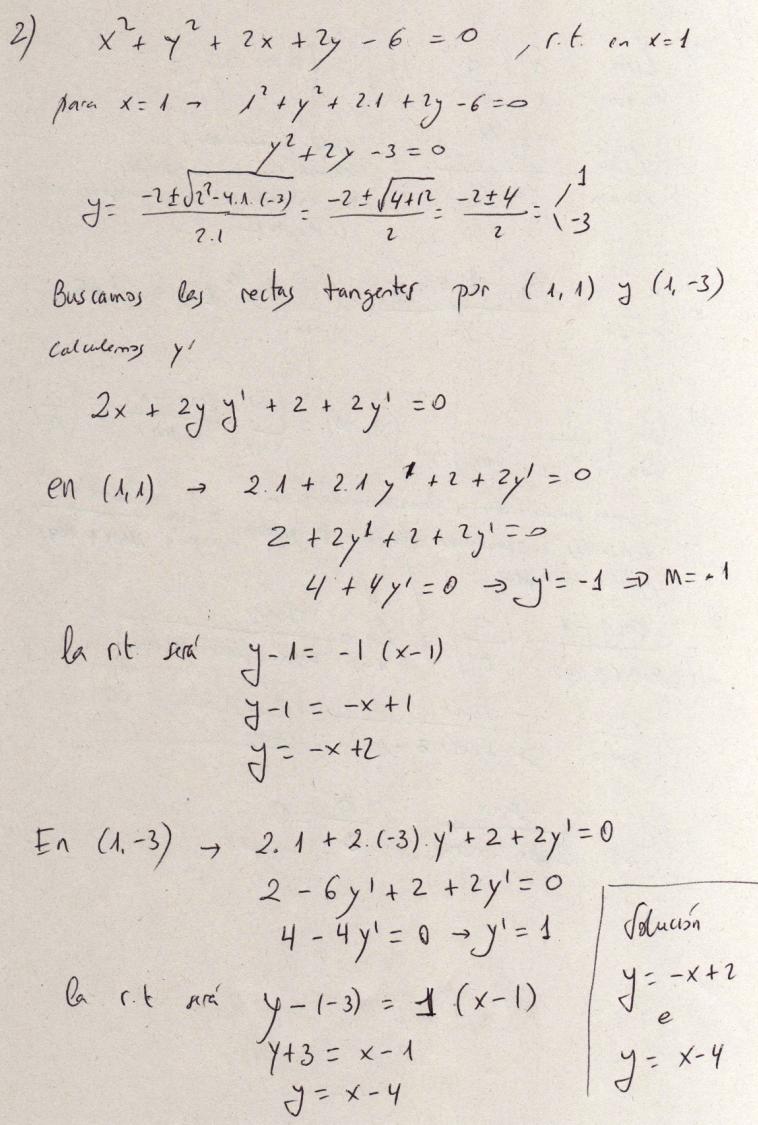 2) x² + y² + 2x + 2y - 6 = 0 , r.t. en x=1
para x = 1 → 1² + y² + 2.1 + 2y - 6 = 0
y² + 2y - 3 = 0
y = (-2 ± √(2² - 4.1.(-3)))/2.1 = (-2 ± √(4+12))/2 = (-2 ± 4)/2 = 1 / -3
Buscamos las rectas tangentes por (1, 1) y (1, -3)
Calculemos y'
2x + 2y y' + 2 + 2y' = 0
en (1,1) → 2.1 + 2.1 y' + 2 + 2y' = 0
2 + 2y' + 2 + 2y' = 0
4 + 4y' = 0 → y' = -1 ⇒ m = -1
la r.t será y - 1 = -1 (x-1)
y - 1 = -x + 1
y = -x + 2
En (1,-3) → 2.1 + 2.(-3).y' + 2 + 2y' = 0
2 - 6y' + 2 + 2y' = 0
4 - 4y' = 0 → y' = 1
la r.t será y - (-3) = 1 (x-1)
y + 3 = x - 1
y = x - 4
Solución
y = -x + 2
e
y = x - 4